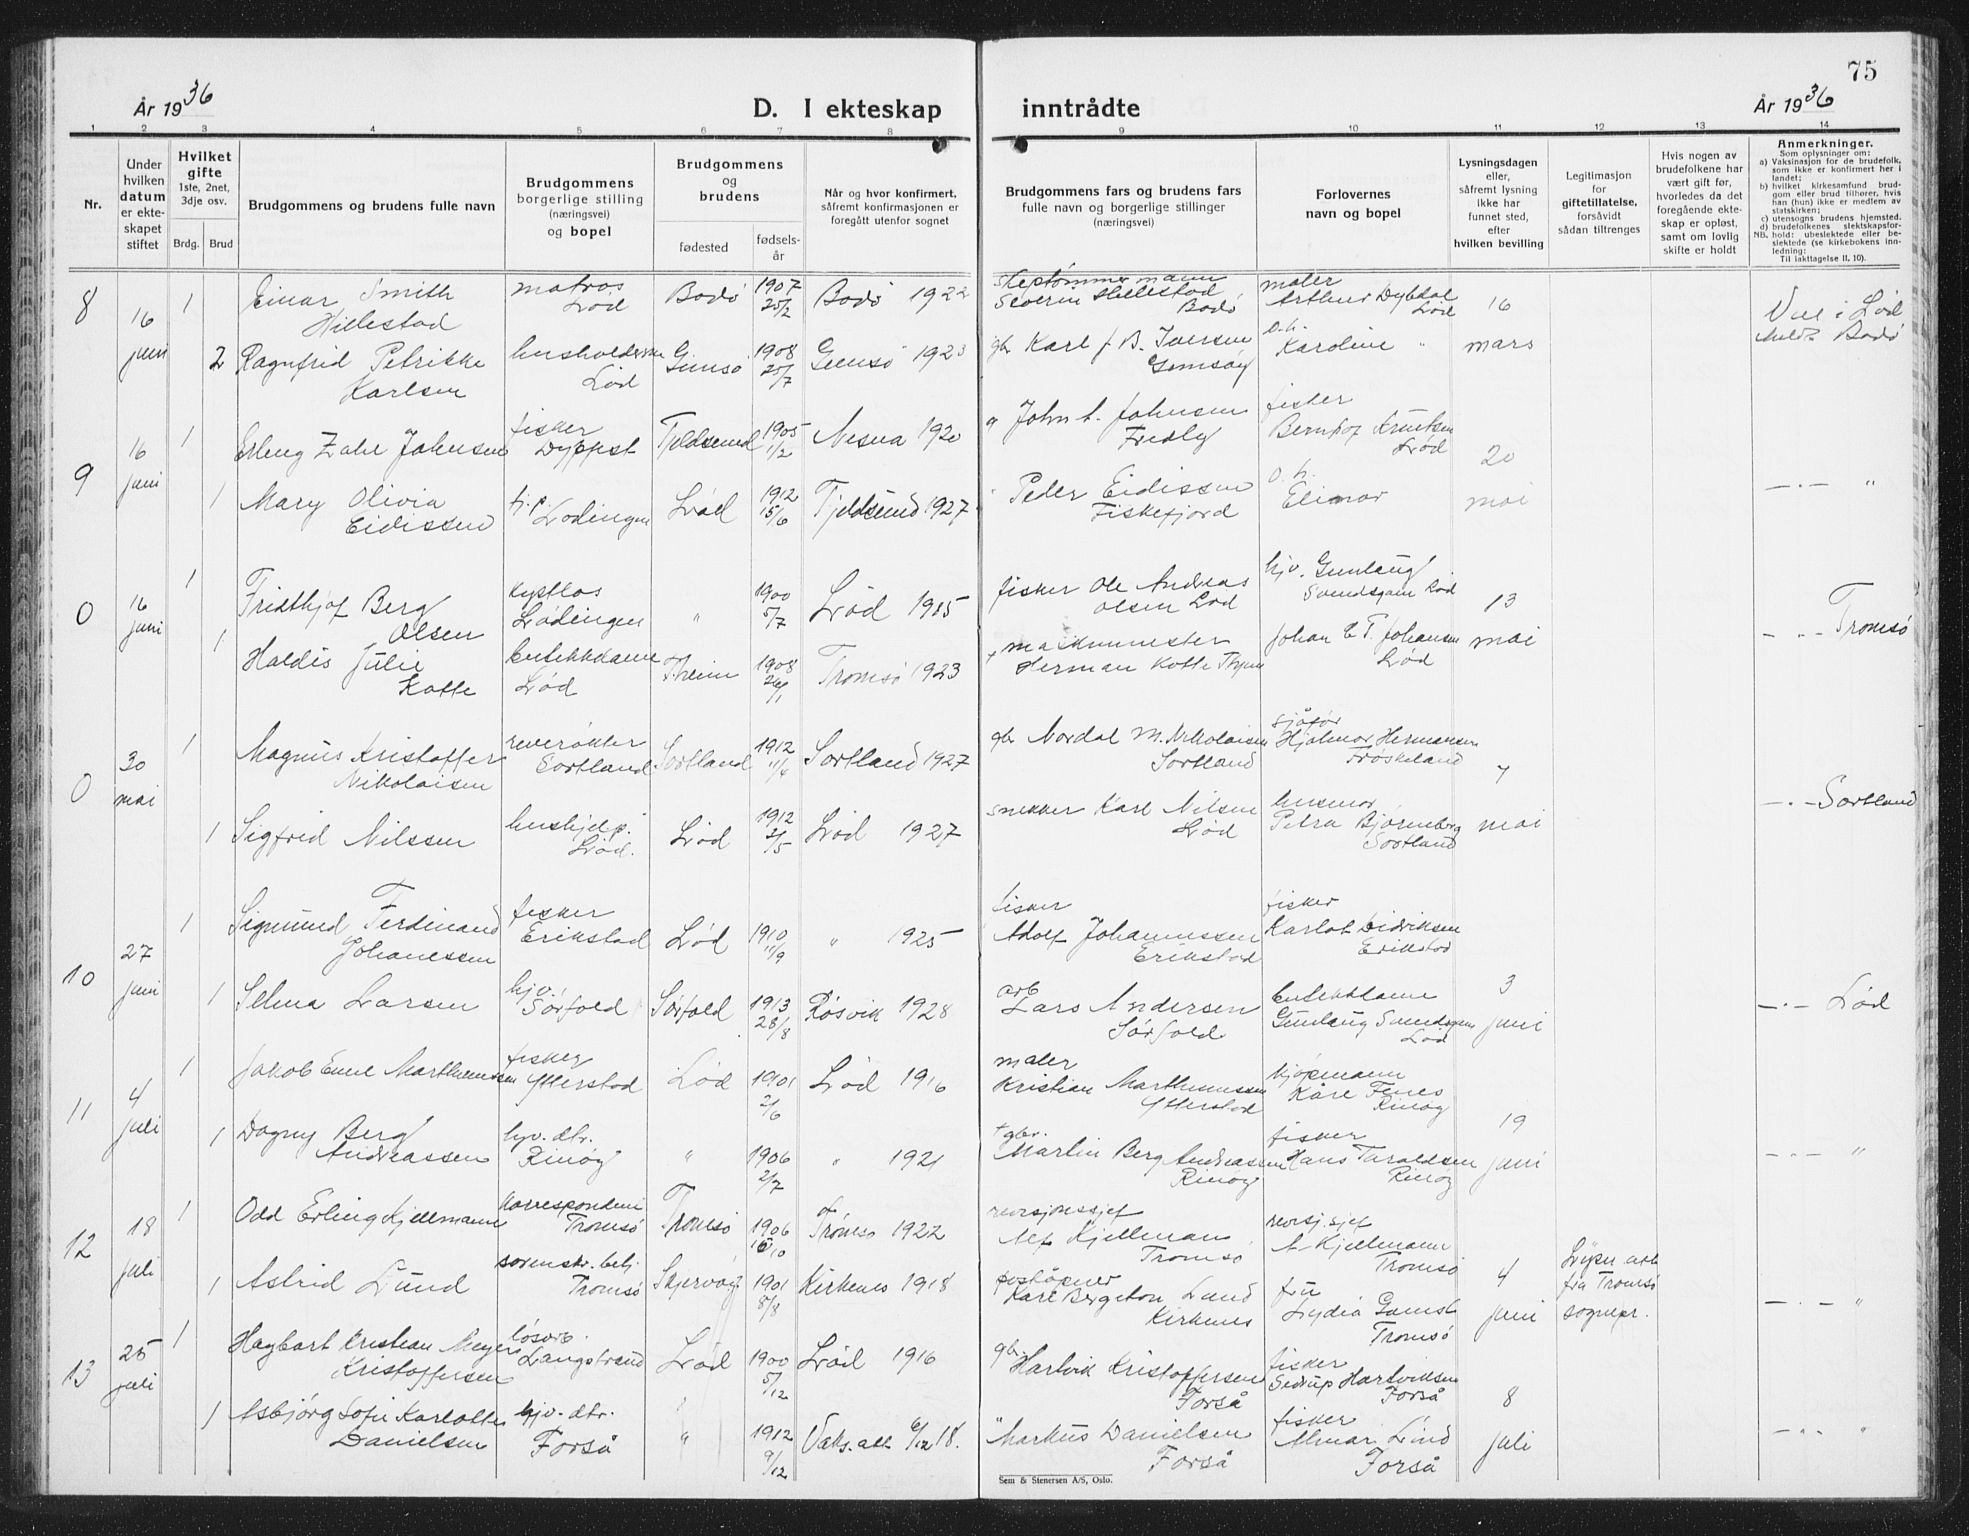 75
År 1936
D. I ekteskap inntrådte
År 1936
1 2 3 4 5 6 7 8 9 10 11 12 13 14
Nr.
Under hvilken datum er ekteskapet stiftet
Hvilket gifte
1ste, 2net, 3dje osv.
Brdg. Brud
Brudgommens og brudens fulle navn
Brudgommens borgerlige stilling (næringsvei) og bopel
Brudgommens og brudens
fødested
fødsels-år
Når og hvor konfirmert, såfremt konfirmasjonen er foregått utenfor sognet
Brudgommens fars og brudens fars fulle navn og borgerlige stillinger (næringsvei)
Forlovernes navn og bopel
Lysningsdagen eller, såfremt lysning ikke har funnet sted, efter hvilken bevilling
Legitimasjon for giftetillatelse, forsåvidt sådan tiltrenges
Hvis nogen av brudefolkene har vært gift før, hvorledes da det foregående ekteskap er opløst, samt om lovlig skifte er holdt
Anmerkninger.
Som oplysninger om:
a) Vaksinasjon for de brudefolk, som ikke er konfirmert her i landet;
b) hvilket kirkesamfund brudgom eller brud tilhører, hvis han (hun) ikke er medlem av statskirken;
c) utensogns brudens hjemsted.
d) brudefolkenes slektskapsforhold: ubeslektede eller beslektede (se kirkebokens innledning:
NB.
Til iakttagelse II, 10).
8 16 juni 1 Einar Smith Hillestad matros Lød Bodø 1907 25/2 Bodø 1922 skiptømmermann Severin Hillestad Bodø maler Arthur Dybdal Lød 16 mars
2 Ragnfrid Petrikke Karlsen Lød Gimsø 1908 25/7 Gimsø 1923 gbr Karl J. B. Iversen Gimsøy Karoline "
Bodø
9 16 juni 1 Erling Johnsen fisker Tjeldsund 1905 1/2 Nesna 1920 John A. Johnsen fisker Knutsen Lød 20 mai
1 Mary Olivia Eidissen Lødingen Lød 1912 15/6 Tjeldsund 1927 Peder Eidissen Fiskefjord Elimar — " — "
0 16 juni 1 Fridthjof Berg Olsen Lødingen " 1900 5/7 Lød 1915 fisker Ole Andreas Olsen Lød hjv. Gunlaug Svendsgam Lød 13 mai
1 Haldis Julie Kotte butikkdame Lød Tr.heim 1908 26/1 Tromsø 1923 + maskinmester Herman Kotte Johan E T. Johansen Lød — " — Tromsø
0 30 mai 1 Magnus Kristoffer Nikolaisen reverøkter Sortland Sortland 1912 11/4 Sortland 1927 gbr Nordal M. Nikolaisen Sortland sjåfør Hjalmar Hermansen Frøskeland 7 mai
1 Sigfrid Nilssen hushjelp. Lød. Lød 1912 2/5 Lød 1927 snekker Karl Nilsen Lød husmor Petra Bjørnberg Sortland — " — Sortland
10 27 juni 1 Sigmund Ferdinand Johanessen fisker Erikstad Lød 1910 11/9 " 1925 fisker Adolf Johannessen Erikstad fisker Karlot Didriksen Erikstad 3 juni
1 Selma Larsen hjv. Sørfold Sørfold 1913 28/8 Røsvik 1928 arb Lars Andersen Sørfold butikkdame Gunlaug Lød — " — Lød
11 4 juli 1 Jakob Emil Marthinussen fisker Ytterstad Lød 1901 2/6 Lød 1916 maler Kristian Marthinussen Ytterstad kjøpmann Kåre Fenes Rinøy 19 juni
1 Dagny Berg Andreassen hjv. dtr. Rinøy " 1906 2/7 " 1921 + gbr. Martin Berg Andreassen Rinøy fisker Hans Taraldsen Rinøy — " — "
12 18 juli 1 Odd Erling Kjellmann korrespondent Tromsø Tromsø 1906 10 Tromsø 1922 revisjonssjef Alf Kjellman Tromsø revisj. sjef A. Kjellmann Tromsø 4 juni
1 Astrid Lund sorenskr. betj. Tromsø Skjervøy 1901 8/8 Kirkenes 1918 poståpner Kare Bergeton Lund Kirkenes fru Lydia Gamst Tromsø
Lysn. att. fra Tromsø sognepr. — " — "
13 25 juli 1 Hagbart Kristian Meyer Kristoffersen løsarb. Langstrand Lød 1900 5/12 Lød 1916 gbr. Hartvik Kristoffersen Forså fisker Sedrup Hartviksen Forså 8 juli
1 Asbjørg Sofie Karlotte Danielsen hjv. dtr. Forså " 1912 9/12 Vaks. att. 6/12 18. " Markus Danielsen Forså fisker Almar Lind Forså — " — "
Sem & Stenersen A/S, Oslo.